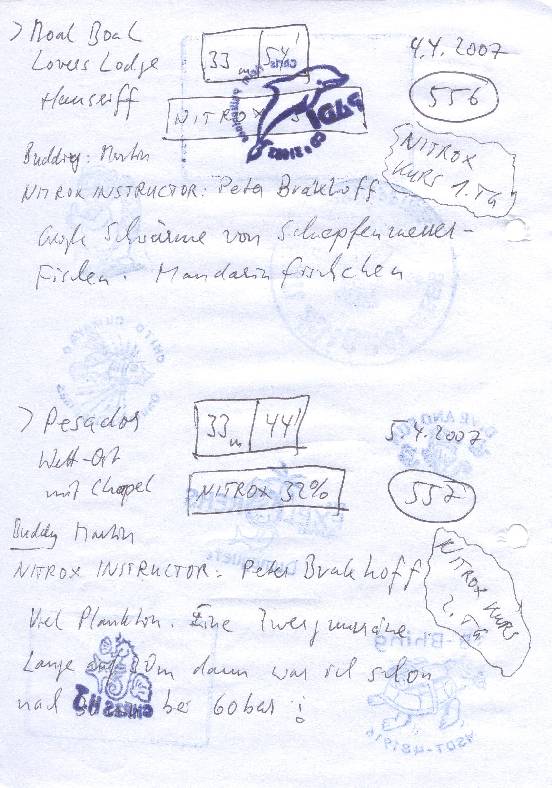 > Moal Boal
Lovers Lodge
Hausriff
33m 54'
4.4.2007
NITROX
556
NITROX
KURS 1. TG
Buddy: Martin
NITROX INSTRUCTOR: Peter Brakhoff
Große Schwärme von Schnepfenmesser-
Fischen. Mandarinfischchen
> Pescador
West-Ost
mit Chapel
33m 44'
5.4.2007
NITROX 32%
557
Buddy Martin
NITROX INSTRUCTOR: Peter Brakhoff
NITROX KURS
2. TG
Viel Plankton. Eine Zwergmuräne.
Lange auf dann war ich schon
bei 60bar!